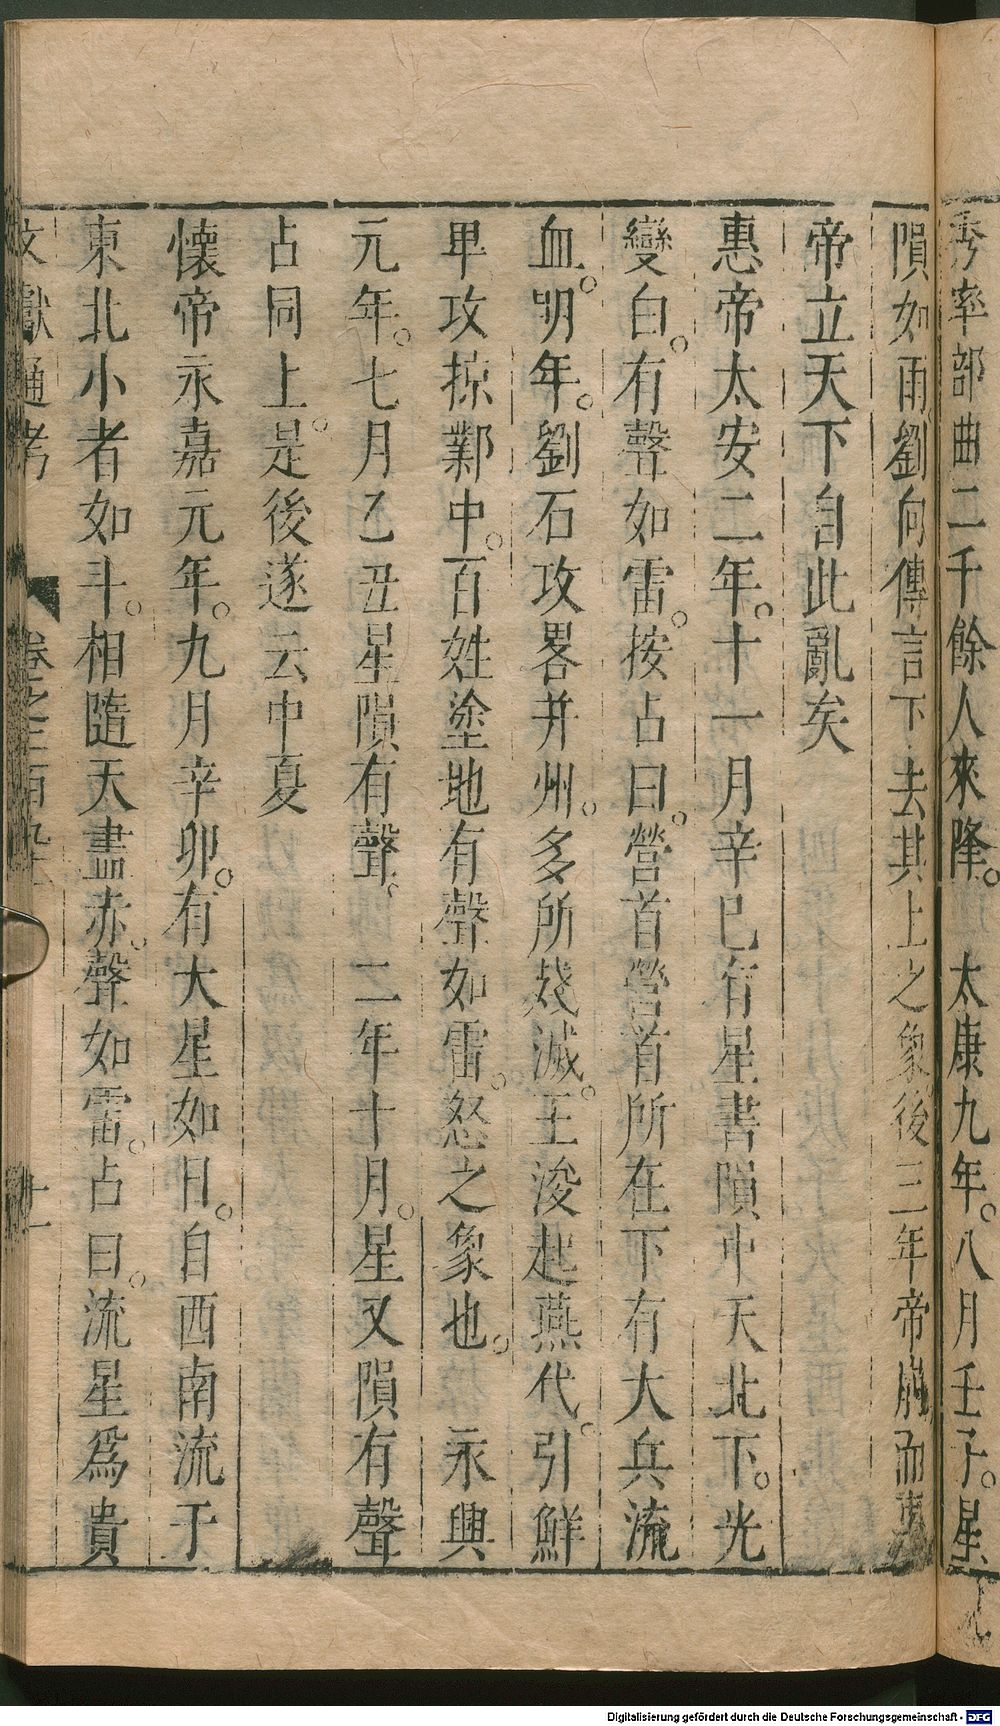 秀率部曲二千餘人來降。 太康九年。八月壬子。星
隕如雨劉向傳言下去其上之象後三年帝崩而惠
帝立天下自此亂矣
惠帝太安二年。十一月辛巳有星書隕中天北下。光
變白。有聲如雷。按占曰。營首營首所在下有大兵流
血。明年。劉石攻畧并州。多所殘滅。王浚起燕代。引鮮
卑攻掠鄴中。百姓塗地有聲如雷。怒之象也。 永興
元年。七月乙丑星隕有聲。 二年十月。星又隕有聲
占同上。是後遂云中夏
懷帝永嘉元年。九月辛卯。有大星如日。自西南流于
東北小者如斗。相隨天盡赤。聲如雷。占曰。流星爲貴
文獻通考 卷之二百九十一 十一
Digitalisierung gefördert durch die Deutsche Forschungsgemeinschaft - DFG